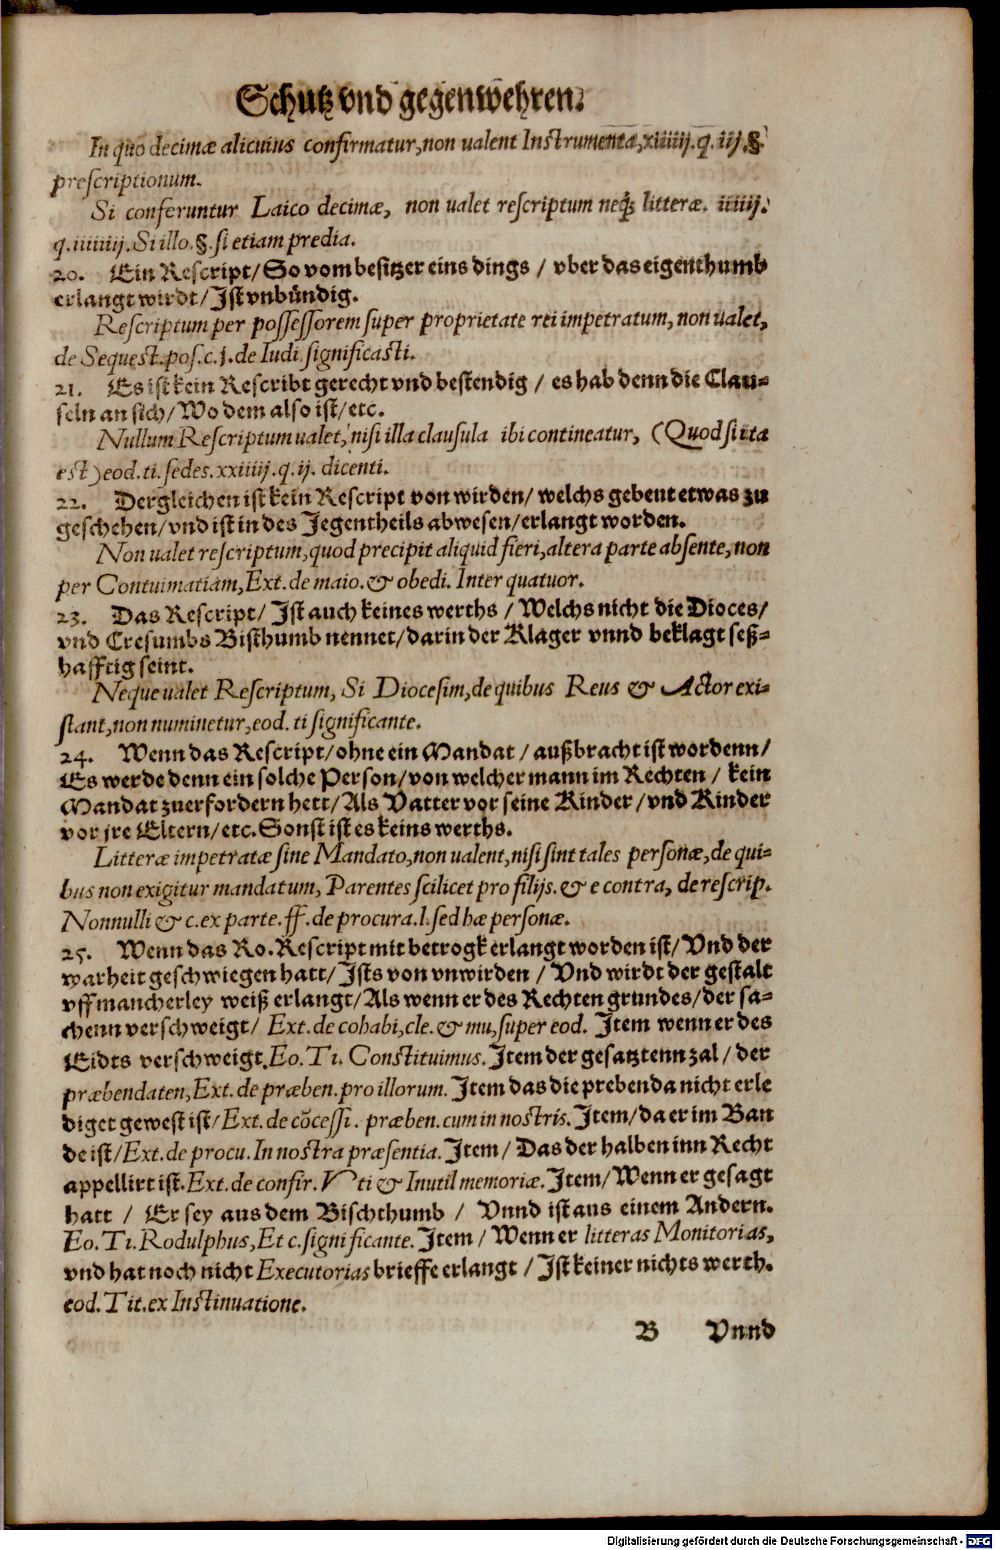 Schutz vnd gegenwehren.
In quo decimæ alicuius confirmatur, non ualent Instrumenta, xiiiiij. q. iij. §.
prescriptionum.
Si conferuntur Laico decimæ, non ualet rescriptum neq; litteræ. iiiiij.
q. iiiiiij. Si illo. §. si etiam predia.
20. Ein Rescript/ So vom besitzer eins dings / vber das eigenthumb
erlangt wirdt/ Ist vnbündig.
Rescriptum per possessorem super proprietate rei impetratum, non ualet,
de Sequest. pos. c. j. de Iudi. significasti.
21. Es ist kein Rescribt gerecht vnd bestendig / es hab denn die Clau-
seln an sich/ Wo dem also ist/ etc.
Nullum Rescriptum ualet, nisi illa clausula ibi contineatur, (Quod si ita
est) eod. ti. sedes. xxiiiij. q. ij. dicenti.
22. Dergleichen ist kein Rescript von wirden/ welchs gebeut etwas zu
geschehen/ vnd ist in des Jegentheils abwesen/ erlangt worden.
Non ualet rescriptum, quod precipit aliquid fieri, altera parte absente, non
per Contuimatiam, Ext. de maio. & obedi. Inter quatuor.
23. Das Rescript/ Ist auch keines werths / Welchs nicht die Dioces/
vnd Cresumbs Bisthumb nennet/ darin der Klager vnnd beklagt seß-
hafftig seint.
Neque ualet Rescriptum, Si Diocesim, de quibus Reus & Actor exi-
stant, non numinetur, eod. ti significante.
24. Wenn das Rescript/ ohne ein Mandat / außbracht ist wordenn/
Es werde denn ein solche Person/ von welcher mann im Rechten / kein
Mandat zuerfordern hett/ Als Vatter vor seine Kinder/ vnd Kinder
vor jre Eltern/ etc. Sonst ist es keins werths.
Litteræ impetratæ sine Mandato, non ualent, nisi sint tales personæ, de qui-
bus non exigitur mandatum, Parentes scilicet pro filijs. & e contra, de rescrip.
Nonnulli & c. ex parte. ff. de procura. l. sed hæ personæ.
25. Wenn das Ro. Rescript mit betrogk erlangt worden ist/ Vnd der
warheit geschwiegen hatt/ Ists von vnwirden / Vnd wirdt der gestalt
vff mancherley weiß erlangt/ Als wenn er des Rechten grundes/ der sa-
chenn verschweigt/ Ext. de cohabi, cle. & mu, super eod. Item wenn er des
Eidts verschweigt. Eo. Ti. Constituimus. Item der gesatztenn zal / der
præbendaten, Ext. de præben. pro illorum. Item das die prebenda nicht erle
diget gewest ist/ Ext. de cõcessi. præben. cum in nostris. Item/ da er im Ban
de ist/ Ext. de procu. In nostra præsentia. Item/ Das der halben inn Recht
appellirt ist. Ext. de confir. Vti & Inutil memoriæ. Item/ Wenn er gesagt
hatt / Er sey aus dem Bischthumb / Vnnd ist aus einem Andern.
Eo. Ti. Rodulphus, Et c. significante. Item / Wenn er litteras Monitorias,
vnd hat noch nicht Executorias brieffe erlangt / Ist keiner nichts werth.
eod. Tit. ex Instinuatione.
B Vnnd
Digitalisierung gefördert durch die Deutsche Forschungsgemeinschaft - DFG